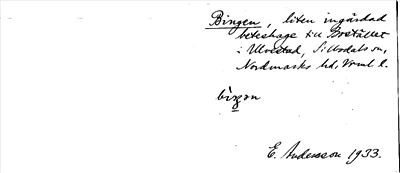 Bingen, liten ingärdad
beteshage till Brstället
i Ulvestad, Sillerdals sn,
Nordmarks hd, Vrml l.
E. Andersson 1933.